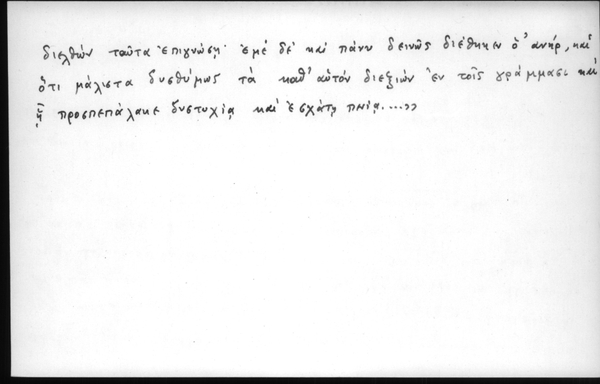 διελθὼν ταῦτα ἐπιγνώσῃ· ἐμὲ δὲ καὶ πάνυ δεινῶς διέθηκεν ὁ ἀνήρ, καὶ
ὅτι μάλιστα δυσθύμως τὰ καθ' αὑτὸν διεξιὼν ἐν τοῖς γράμμασι καὶ
ᾗ προσπεπάλακε δυστυχίᾳ καὶ ἐσχάτῃ πενίᾳ....››